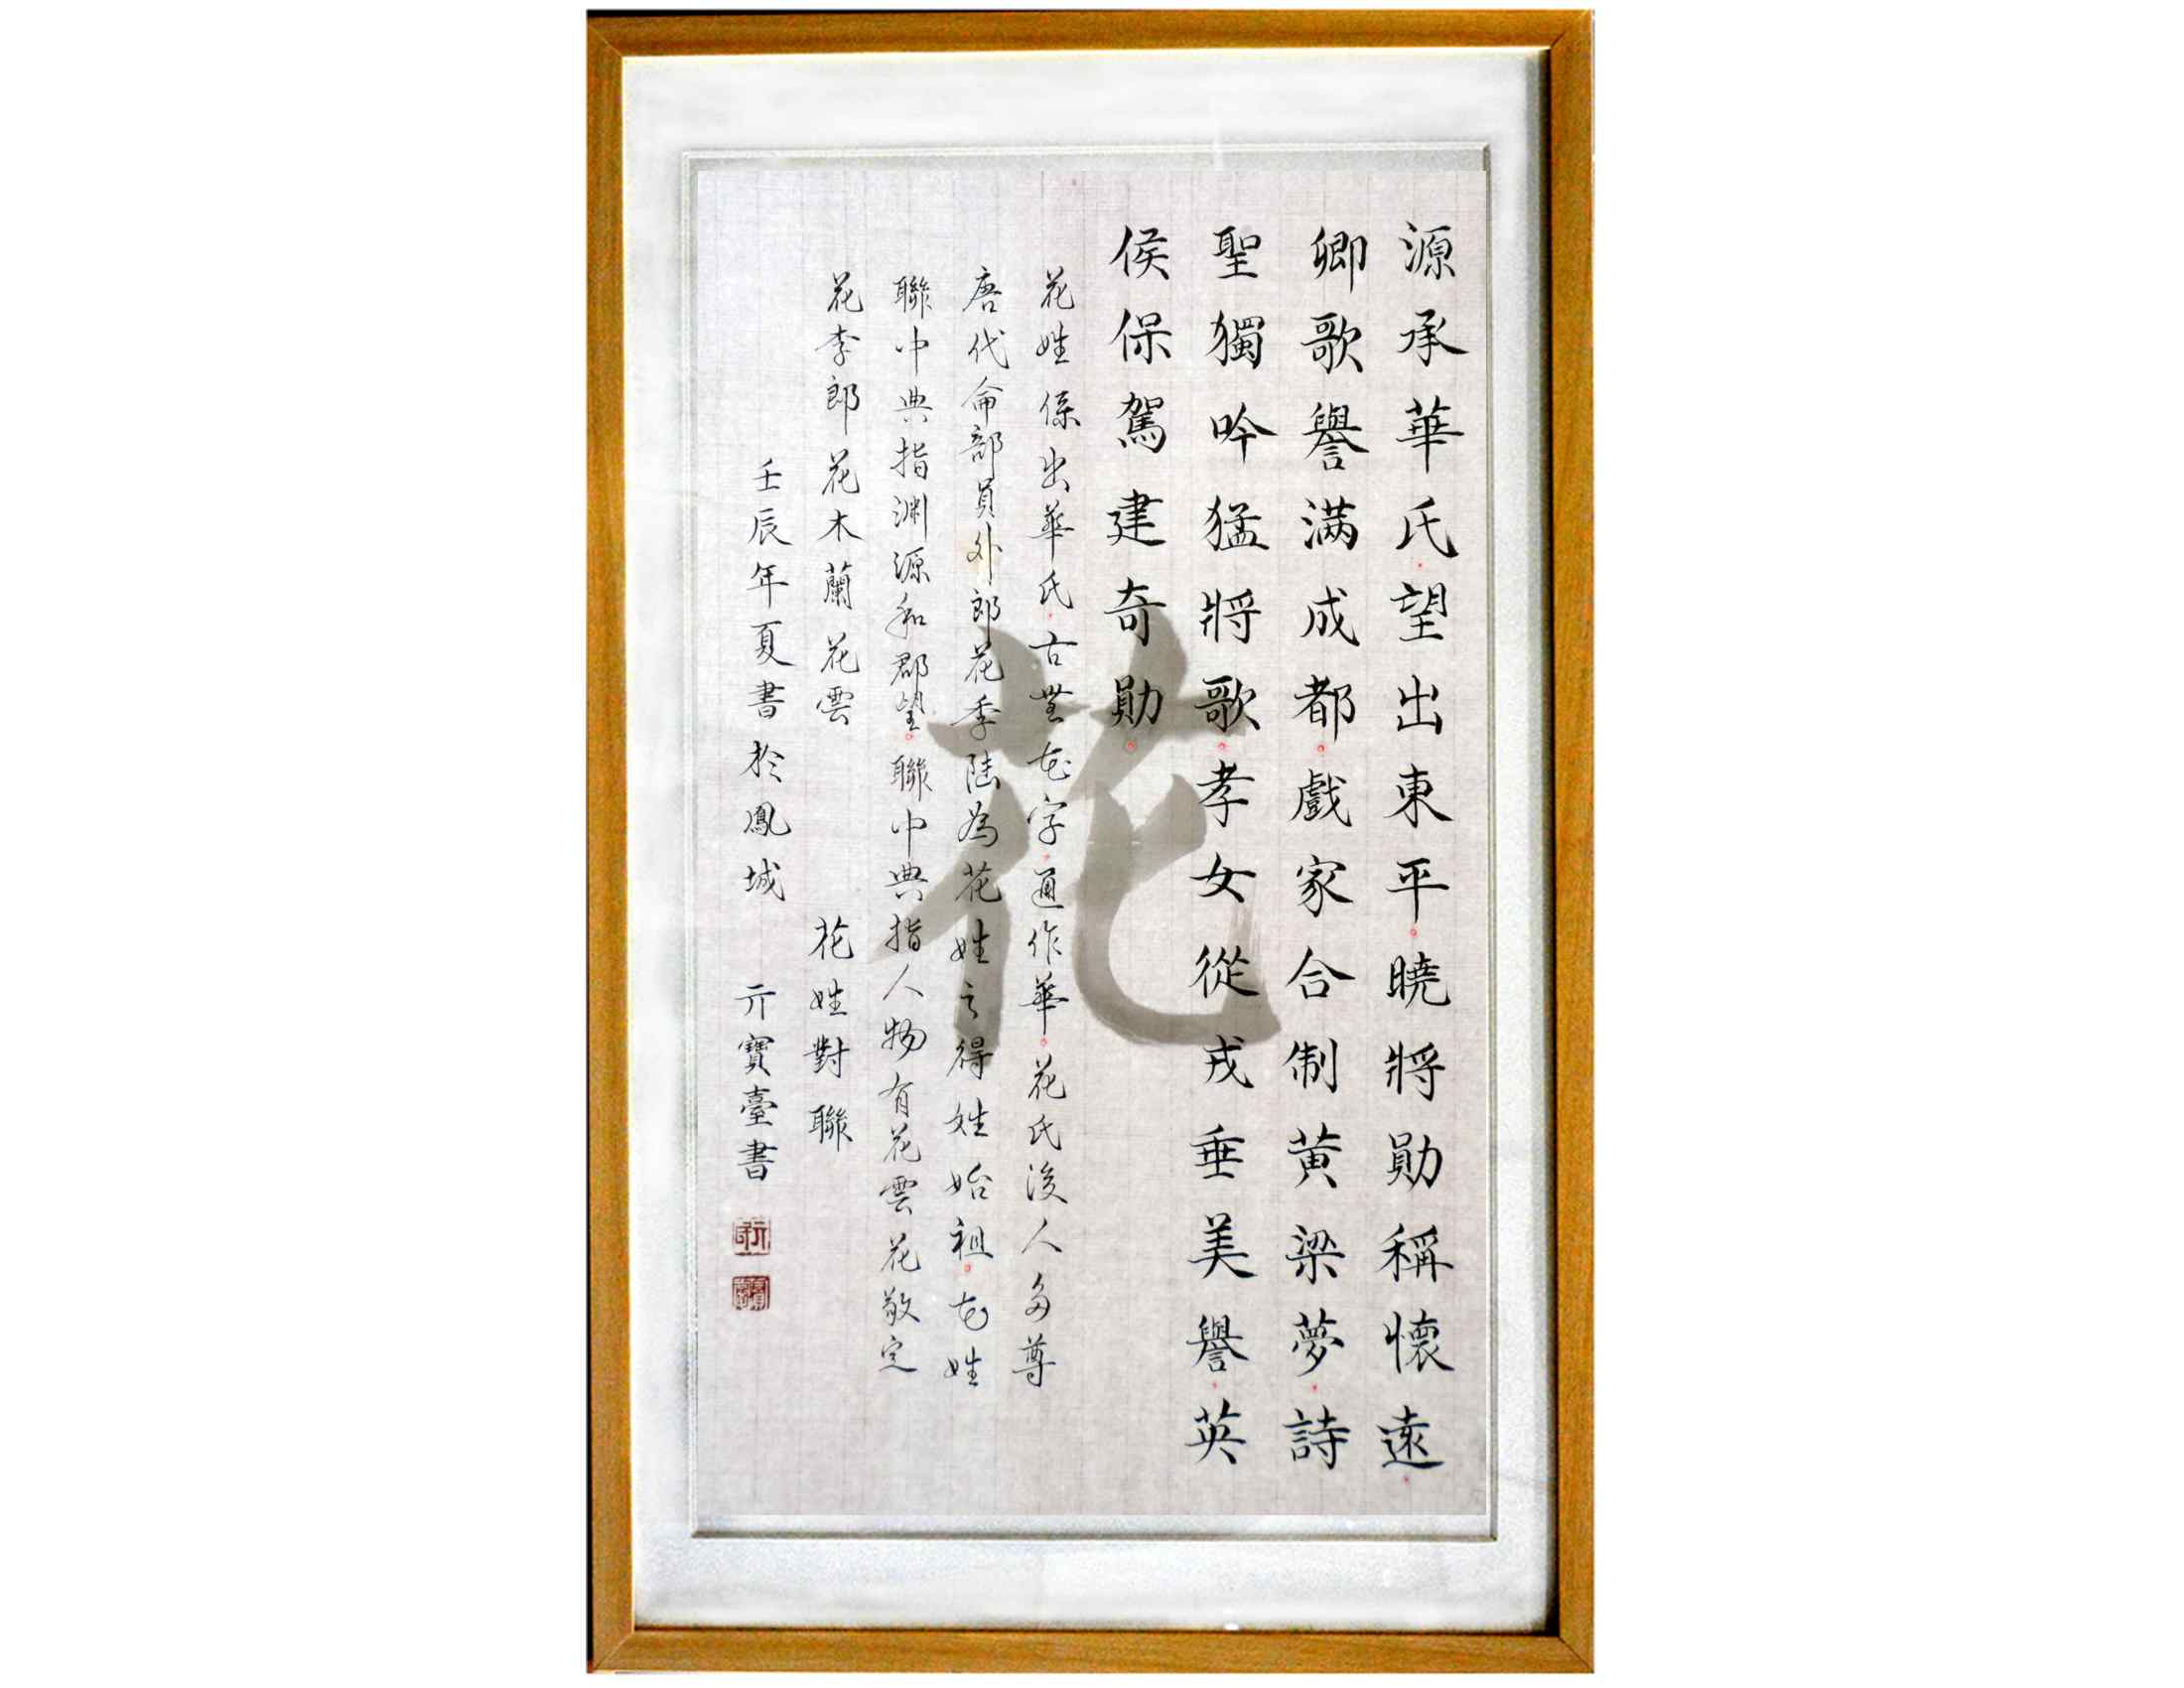 源承華氏望出東平曉將勛稱懷遠
卿歌譽满成都戲家合制黄梁夢詩
聖獨吟猛將歌孝女從戎垂美譽英
侯保駕建奇勛
花姓係出華氏古無花字通作華花氏後人多尊
唐代侖部員外郎花季陸為花姓之得姓始祖花姓
聯中典指淵源和郡望聯中典指人物有花雲花敬定
花李郎花木蘭花雲 花姓對聯
壬辰年夏書於鳳城 亓寶臺書
花